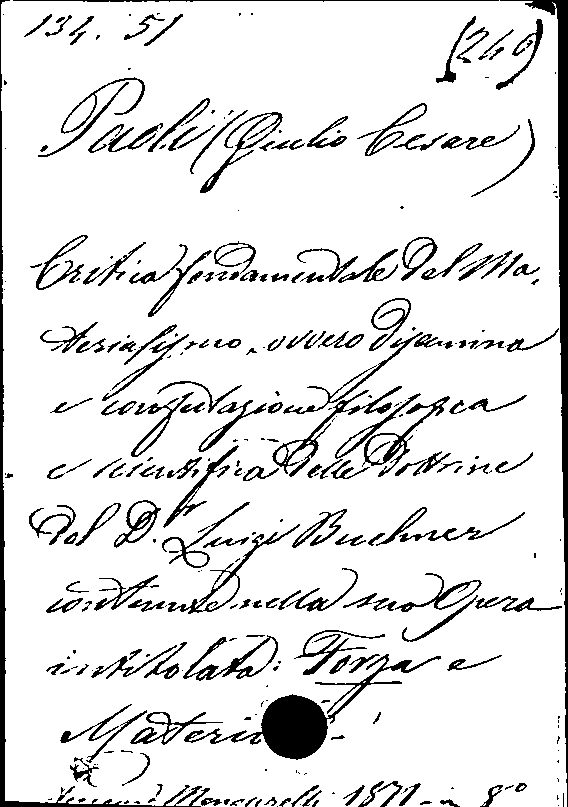 134. 51
(240)
Paoli (Giulio Cesare)
Critica fondamentale del Ma,
terialismo, ovvero disamina
e confutazione filosofica
e scientifica delle dottrine
del D.r Luigi Buchner
contenute nella sua Opera
intitolata: Forza e
Materi
1871 in 8º